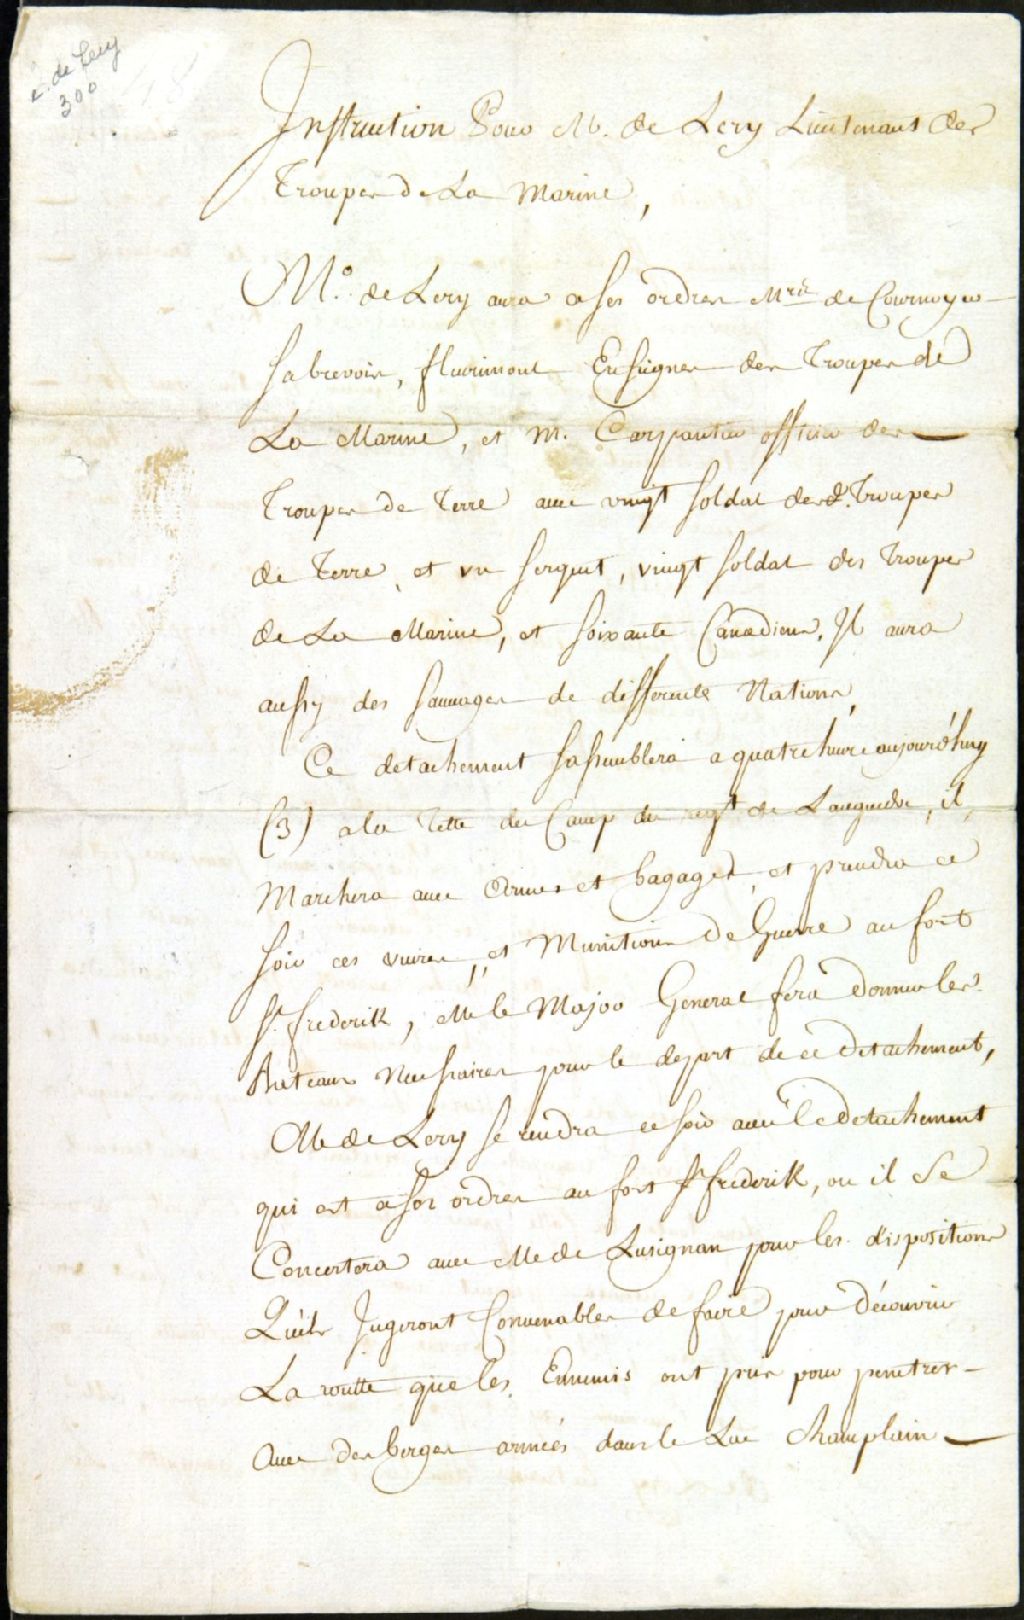 C. de Lery
300
18
Instruction Pour M. de Lery Lieutenant des
Troupes de La Marine,
Mr. de Lery aura a ses ordres Mrs de Cournoyer
Sabrevoix, fleurimont Enseignes des Troupes de
La Marine, et M. Carpantier officier des
Troupes de Terre avec vingt soldat desd. Troupes
de Terre, et un sergent, vingt soldat des Troupes
de La Marine, et soixante Canadiens, Il aura
aussy des sauvages de differente Nations,
Ce detachement sassemblera a quatre heure aujourd'huy
(3) a la Tette du Camp du regt de Languedoc, il,
Marchera avec Armes et bagages, et prendra ce
soir ces vivres, et Munitions de Guerre au fort
St. frederik, M. le Major General fera donner les
Bateaux Necessaires pour le depart de ce Detachement,
M. de Lery se rendra ce soir avec le detachement
qui est a ses ordres au fort St frederik, ou il Se
Concertera avec M. de Lusignan pour les dispositions
Qu'ils Jugeront Convenables de faire pour découvrir
La routte que les Ennemis ont pris pour penetrer
Avec des berges armées dans le Lac Champlain